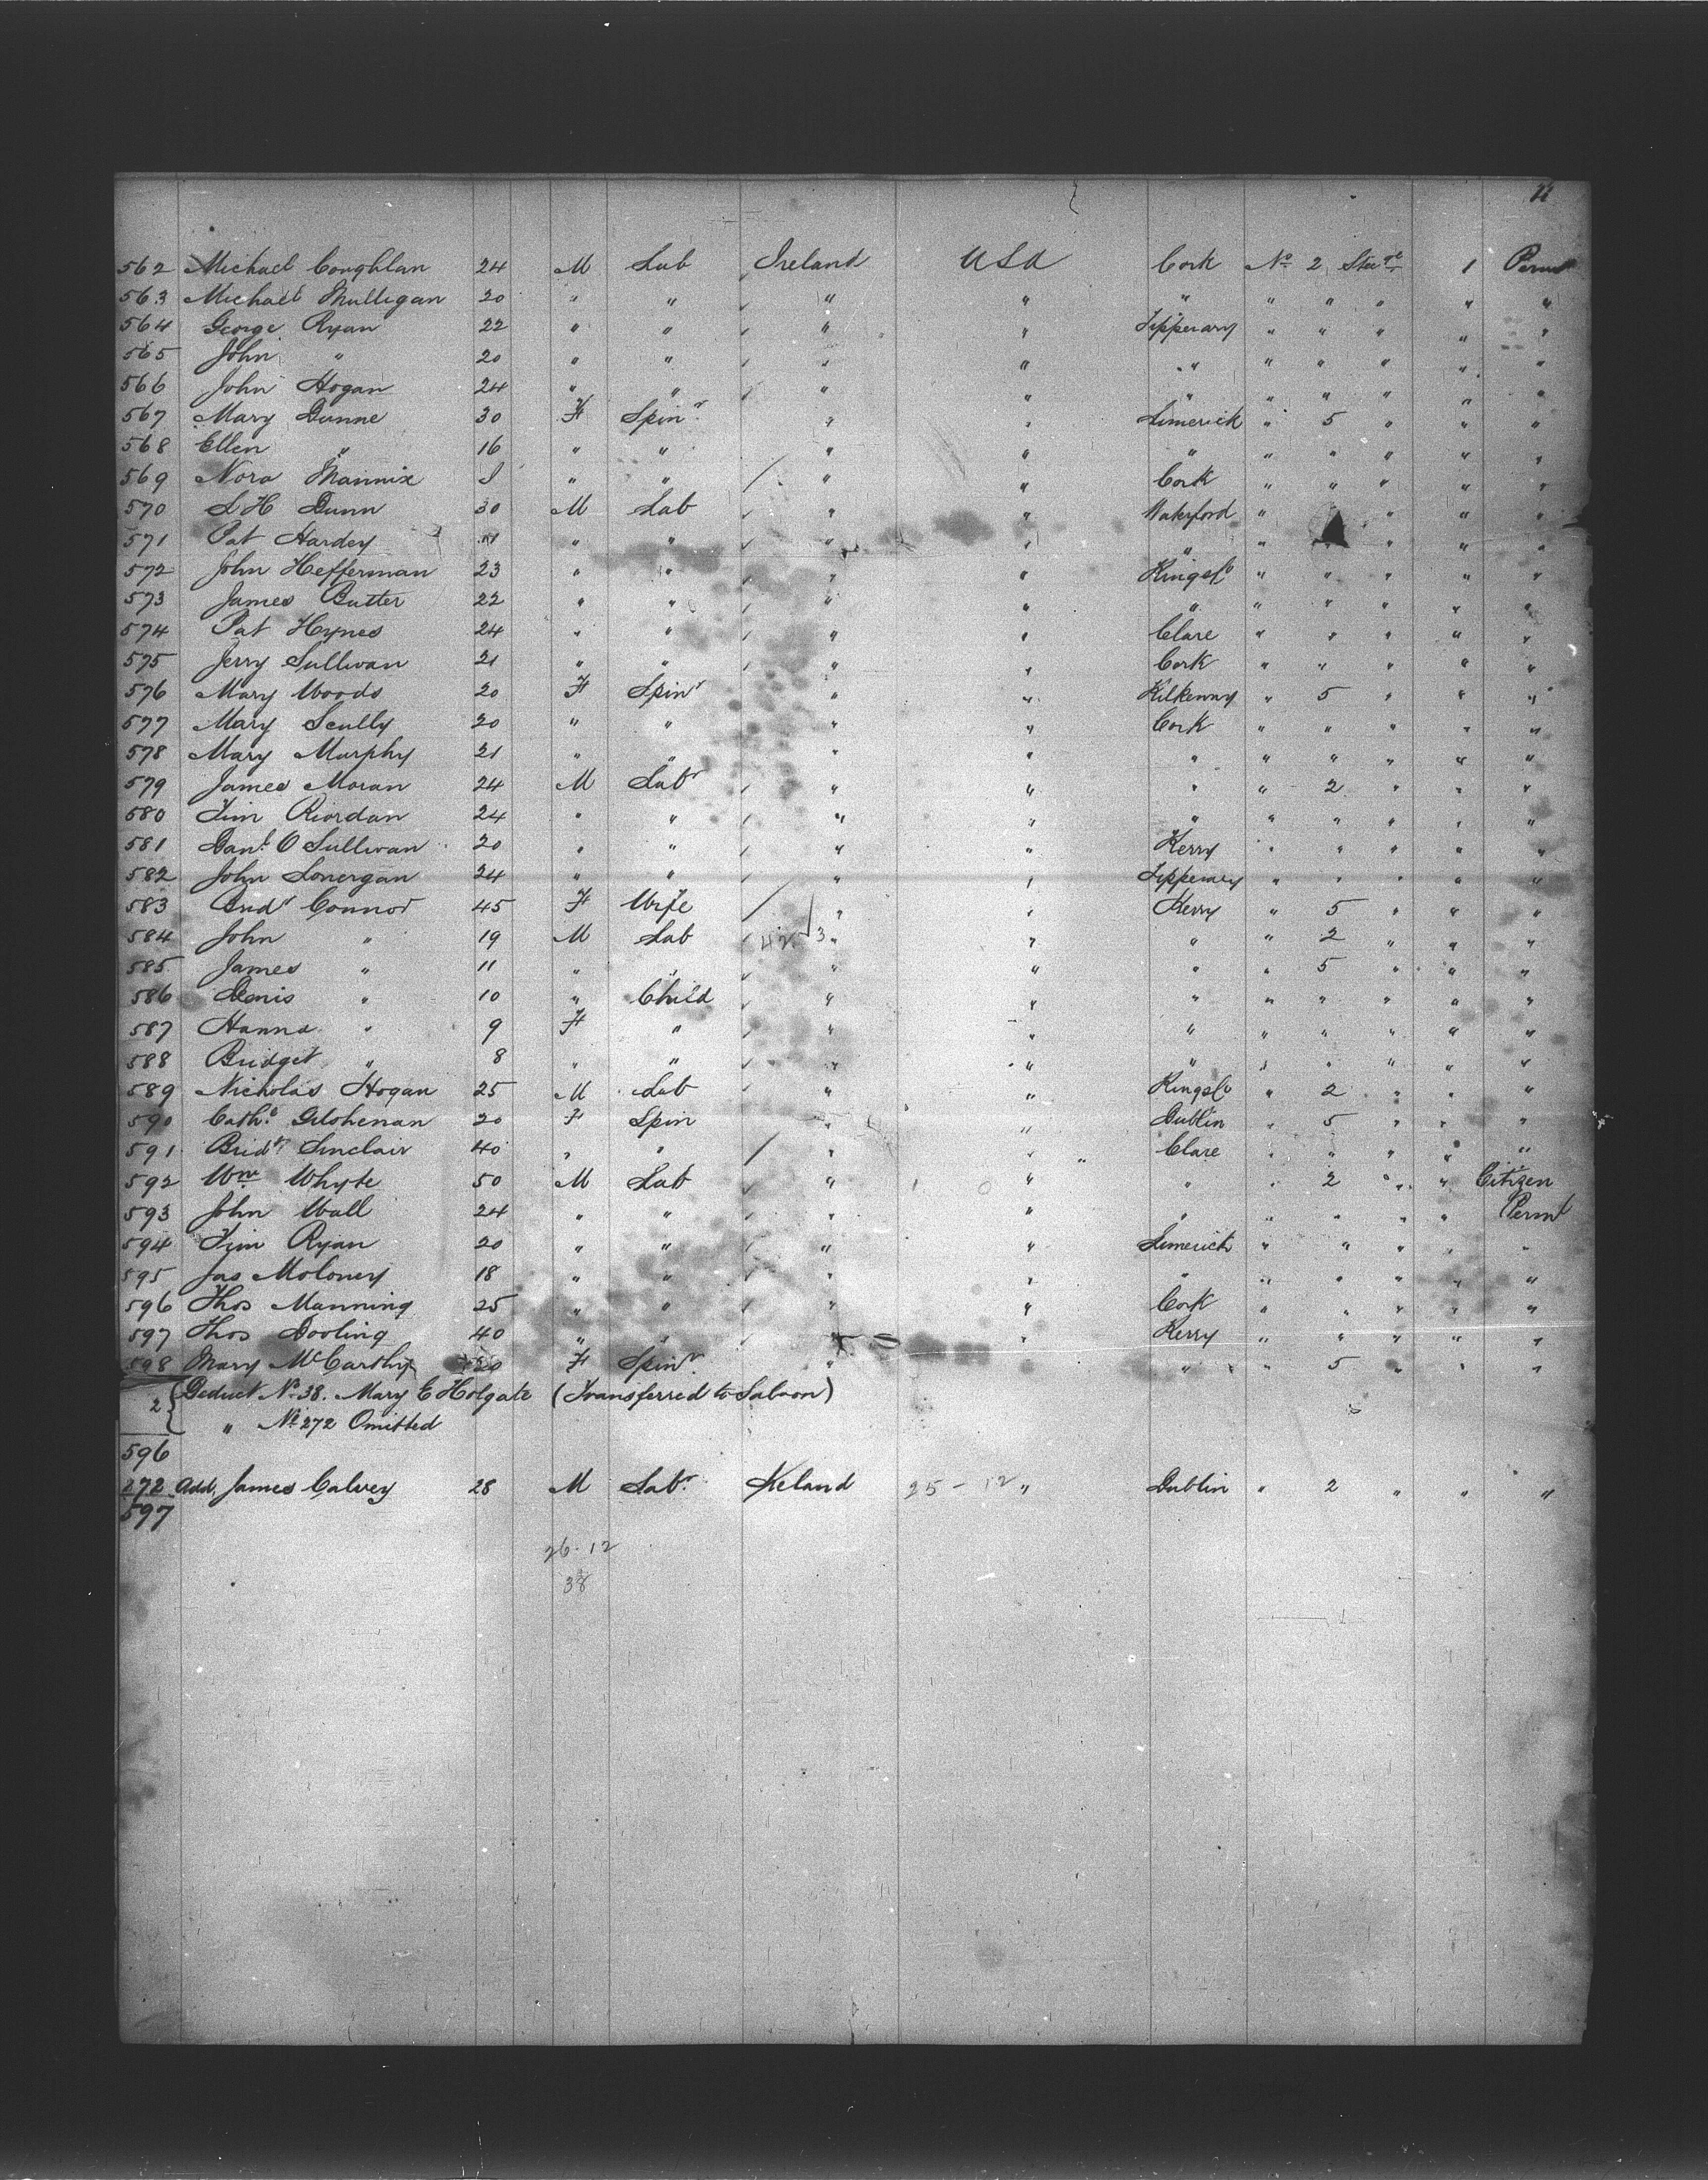 11
562 Michael Coughlan 24 M Lab Ireland USA Cork No 2 Steerge 1 Permt
563 Michael Mulligan 20 " " " " " " " " " "
564 George Ryan 22 " " " " Tipperary " " " " "
565 John " 20 " " " " " " " " " "
566 John Hogan 24 " " " " " " " " " "
567 Mary Dunne 30 F Spinr " " Limerick " 5 " " "
568 Ellen " 16 " " " " " " " " " "
569 Nora Mannix " " " " Cork " " " " "
570 L H Dunn 30 M Lab " " Waterford " " " "
571 Pat Hardey " " " " " " " " "
572 John Hefferman 23 " " " " Kings Co " " " " "
573 James Butter 22 " " " " " " " " " "
574 Pat Hynes 24 " " " " Clare " " " " "
575 Jerry Sullivan 21 " " " " Cork " " " " "
576 Mary Woods 20 F Spinr " " Kilkenny " 5 " " "
577 Mary Scully 20 " " " " Cork " " " " "
578 Mary Murphy 21 " " " " " " " " " "
579 James Moran 24 M Labr " " " " 2 " " "
580 Tim Riordan 24 " " " " " " " " " "
581 Danl O Sullivan 20 " " " " Kerry " " " " "
582 John Lonergan 24 " " " " Tipperary " " " " "
583 Bridt Connor 45 F Wife " " Kerry " 5 " " "
584 John " 19 M Lab 42 3 " " " " 2 " " "
585 James " 11 " " " " " " 5 " " "
586 Denis " 10 " Child " " " " " " " "
587 Hanna " 9 F " " " " " " " " "
588 Bridget " 8 " " " " " " " " " "
589 Nicholas Hogan 25 M Lab " " Kings Co " 2 " " "
590 Cathe Gilshenan 20 F Spin " " Dublin " 5 " " "
591 Bridt Sinclair 40 " " " " Clare " " " " "
592 Wm Whyte 50 M Lab " " " " 2 " " Citizen
593 John Wall 24 " " " " " " " " " Permt
594 Tim Ryan 20 " " " " Limerick " " " " "
595 Jas Moloney 18 " " " " " " " " " "
596 Thos Manning 25 " " " " Cork " " " " "
597 Thos Dooling 40 " " " " Kerry " " " " "
598 Mary McCarthy 20 F Spinr " " " " 5 " " "
2 { Deduct No 38. Mary E Holgate (Transferred to Saloon)
" No 272 Omitted
596
272 Add, James Calvey 28 M Labr Ireland 25 - 12 " Dublin " 2 " " "
597
26 - 12
38